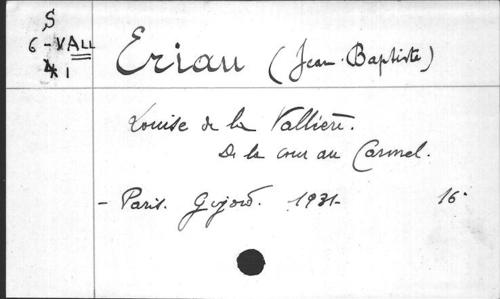 S
6 - VALL
41
Eriau (Jean-Baptiste)
Louise de la Vallière.
De la cour au Carmel.
- Paris. Gigord. 1931- 16°